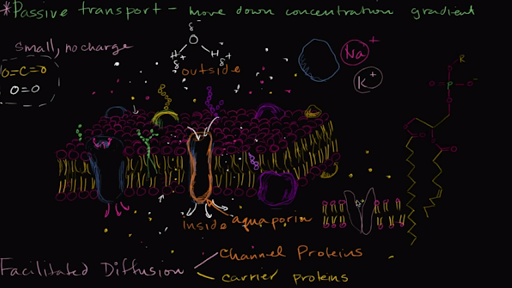 *Passive transport - move down concentration gradient
small, no charge
δ-
O
H H
δ+ δ+
O=C=O
O=O
outside
Na+
K+
R
O
O P O-
O
inside
aquaporin
Facilitated Diffusion
channel Proteins
carrier proteins